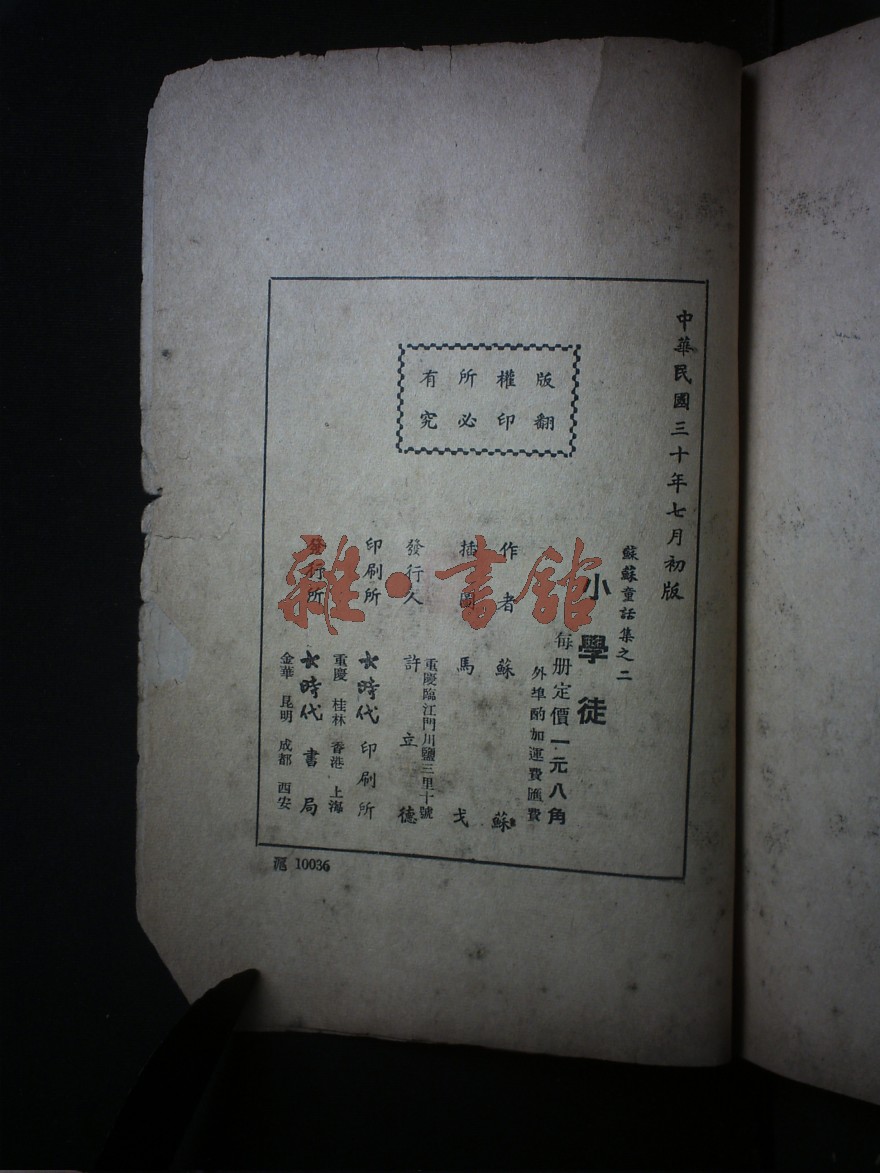 中華民國三十年七月初版
版權所有
翻印必究
蘇蘇童話集之二
小學徒
每册定價一元八角
外埠酌加運費匯費
作者 蘇蘇
插圖 馬戈
發行人 許立德
重慶臨江門川鹽三里十號
印刷所 大時代印刷所
發行所 大時代書局
重慶 桂林 香港 上海
金華 昆明 成都 西安
滬 10036
雜·書館